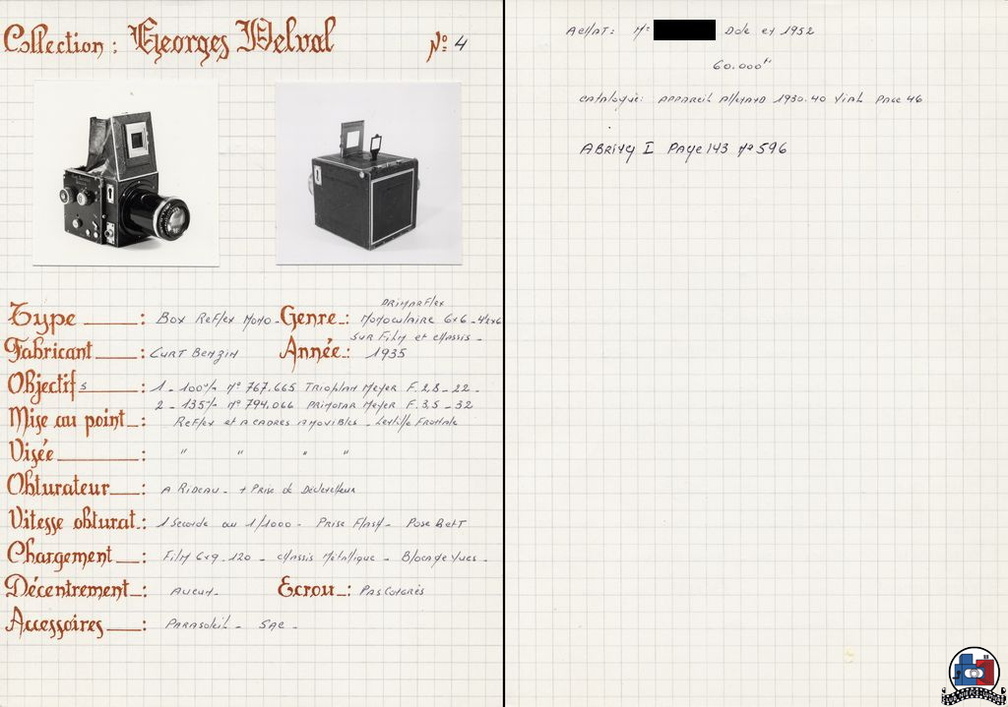 Collection : Georges Delval Nº 4
Primarflex
Type : Box Reflex Mono - Genre : Monoculaire 6x6 - 4½x6
sur Film et chassis -
Fabricant : Curt Benzin Année : 1935
Objectifs : 1 - 100 Nº 767.665 Trioplan Meyer F. 2,8 - 22 -
2 - 135 Nº 794.066 Primotar Meyer F. 3,5 - 32
Mise au point : Reflex et a cadres amovibles - Lentille Frontale
Visée : " " " "
Obturateur : A Rideau - + Prise de Déclencheur
Vitesse obturat. : 1 Seconde au 1/1000 - Prise Flash - Pose B et T
Chargement : Film 6x9 - 120 - chassis Métallique - Blocage vues -
Décentrement : Aucun - Ecrou : Pas Congrès
Accessoires : Parasoleil - Sac -
Achat : Mr Dole en 1952
60.000
catalogue : Appareil Allemand 1930.40 Vial Page 46
Abring I Page 143 Nº 596